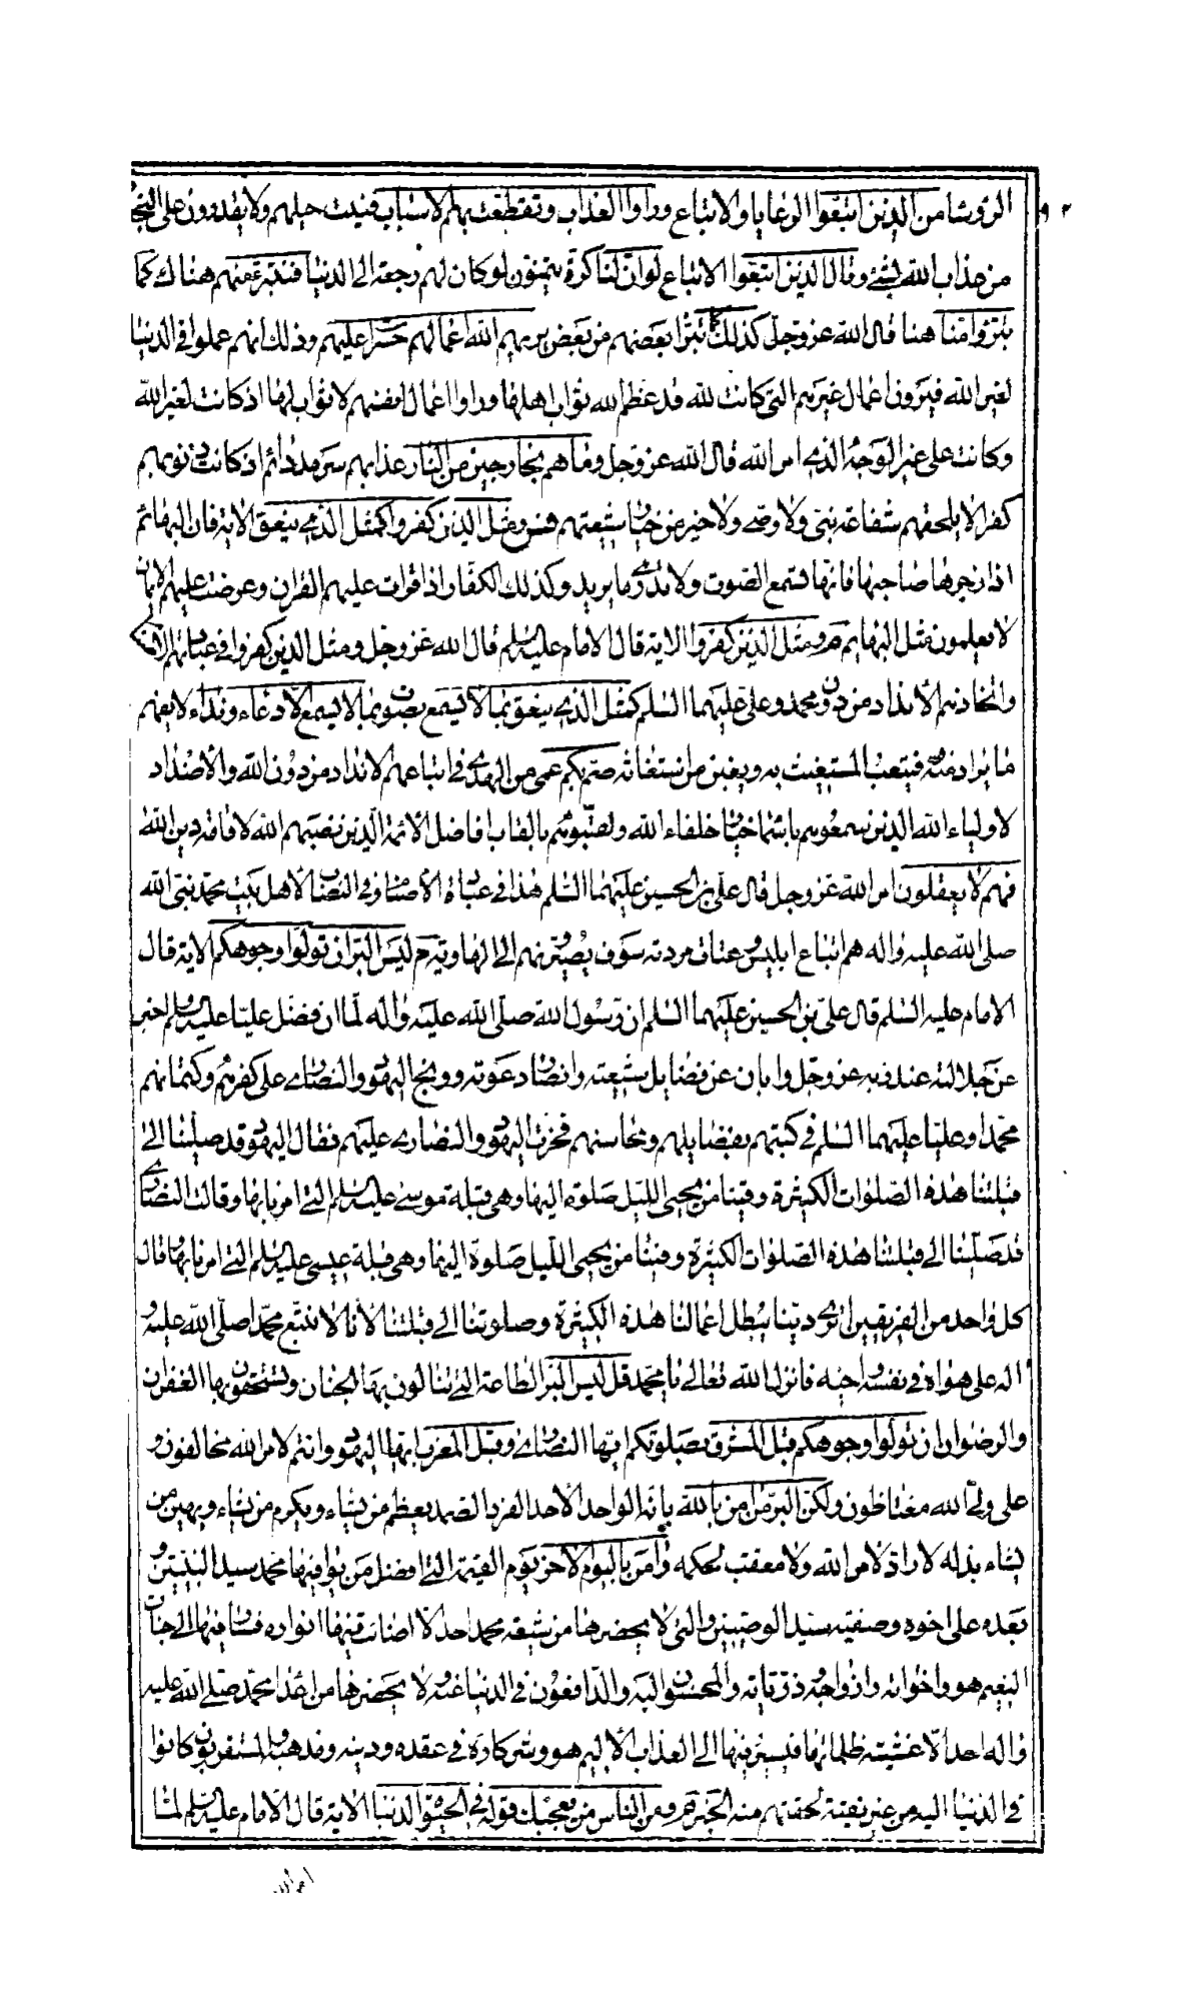 الرؤساء من الذين اتبعوا الرعايا والاتباع وراوا العذاب وتقطعت بهم الاسباب فنيت حيلهم ولا يقدرون على النجاة
من عذاب الله بشئ وقال الذين اتبعوا الاتباع لو ان لنا كرة يتمنون لو كان لهم رجعة الى الدنيا فنتبرء منهم هناك كما
تبرؤا منا هنا قال الله عز وجل كذلك تبرا بعضهم من بعض يريهم الله اعمالهم حسرات عليهم وذلك انهم عملوا في الدنيا
لغير الله فيرون اعمال غيرهم التي كانت لله قد عظم الله ثواب اهلها وراوا اعمال انفسهم لا ثواب لها اذ كانت لغير الله
وكانت على غير الوجه الذي امر الله قال الله عز وجل وما هم بخارجين من النار عذابهم سرمد دائم اذ كانت ذنوبهم
كفرا لا يلحقهم شفاعة نبي ولا وصي ولا خير من خيار شيعتهم ومثل الذين كفروا كمثل الذي ينعق الاية فان البهائم
اذا زجرها صاحبها فانها تسمع الصوت ولا تدري ما يريد وكذلك الكفار اذا قرات عليهم القران وعرضت عليهم الايمان
لا يعلمون مثل البهائم م ومثل الذين كفروا الاية قال الامام عليه السلم قال الله عز وجل ومثل الذين كفروا في عبادتهم الاصنام
واتخاذهم الانداد من دون محمد وعلي عليهما السلم كمثل الذي ينعق بما لا يسمع يصوت بما لا يسمع الا دعاء ونداء لا يفهم
ما يراد منه فيتعب المستغيث به ويغبن من استغاثه صم بكم عمي من الهدى في اتباعهم الانداد من دون الله والاضداد
لاولياء الله الذين سموهم باسماء خيار خلفاء الله ولقبوهم بالقاب افاضل الائمة الذين نصبهم الله لاقامة دين الله
فهم لا يعقلون امر الله عز وجل قال علي بن الحسين عليهما السلم هذا في عباد الاصنام وفي النصاب لاهل بيت محمد نبي الله
صلى الله عليه واله هم اتباع ابليس وعتاة مردته سوف يصيرونهم الى الهاوية م ليس البر ان تولوا وجوهكم الاية قال
الامام عليه السلم قال علي بن الحسين عليهما السلم ان رسول الله صلى الله عليه واله لما ان فضل عليا عليه السلم اخبر
عن جلالته عند ربه عز وجل وابان عن فضايل شيعته وانصار دعوته ووبخ اليهود والنصارى على كفرهم وكتمانهم
محمدا وعليا عليهما السلم في كتبهم بفضايلهم ومحاسنهم فخرت اليهود والنصارى عليهم فقال اليهود قد صلينا الى
قبلتنا هذه الصلوات الكثيرة وفينا من يحيى الليل صلوة اليها وهي قبلة موسى عليه السلم التي امرنا بها وقالت النصارى
قد صلينا الى قبلتنا هذه الصلوات الكثيرة وفينا من يحيى الليل صلوة اليها وهي قبلة عيسى عليه السلم التي امرنا بها وقال
كل واحد من الفريقين اترى ربنا يبطل اعمالنا هذه الكثيرة وصلوتنا الى قبلتنا لانا لا نتبع محمدا صلى الله عليه و
اله على هواه في نفسه واخيه فانزل الله تعالى يا محمد قل ليس البر الطاعة التي تنالون بها الجنان وتستحقون بها الغفران
والرضوان ان تولوا وجوهكم قبل المشرق بصلوتكم ايها النصارى وقبل المغرب ايها اليهود وانتم لامر الله مخالفون و
على ولي الله مغتاظون ولكن البر من امن بالله بانه الواحد الاحد الفرد الصمد يعظم من يشاء ويكرم من يشاء ويهين من
يشاء ويذله لا راد لامر الله ولا معقب لحكمه وامن باليوم الاخر يوم القيمة التي افضل من يوافيها محمد سيد النبيين و
بعده علي اخوه وصفيه سيد الوصيين والتي لا يحضرها من شيعة محمد احد الا اضائت فيها انواره فسار فيها الى جنات
النعيم هو واخوانه وازواجه وذرياته والمحسنون اليه والدافعون في الدنيا عنه ولا يحضرها من اعداء محمد صلى الله عليه
واله احد الا غشيته ظلماتها فيسير فيها الى العذاب الاليم هو وشركاؤه في عقده ودينه ومذهبه والمتقربون كانوا
في الدنيا اليه من غير تقية لحقتهم منه الخبر م ومن الناس من يعجبك قوله في الحيوة الدنيا الاية قال الامام عليه السلم لما